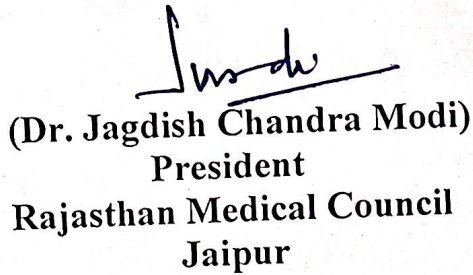 (Dr. Jagdish Chandra Modi)
President
Rajasthan Medical Council
Jaipur